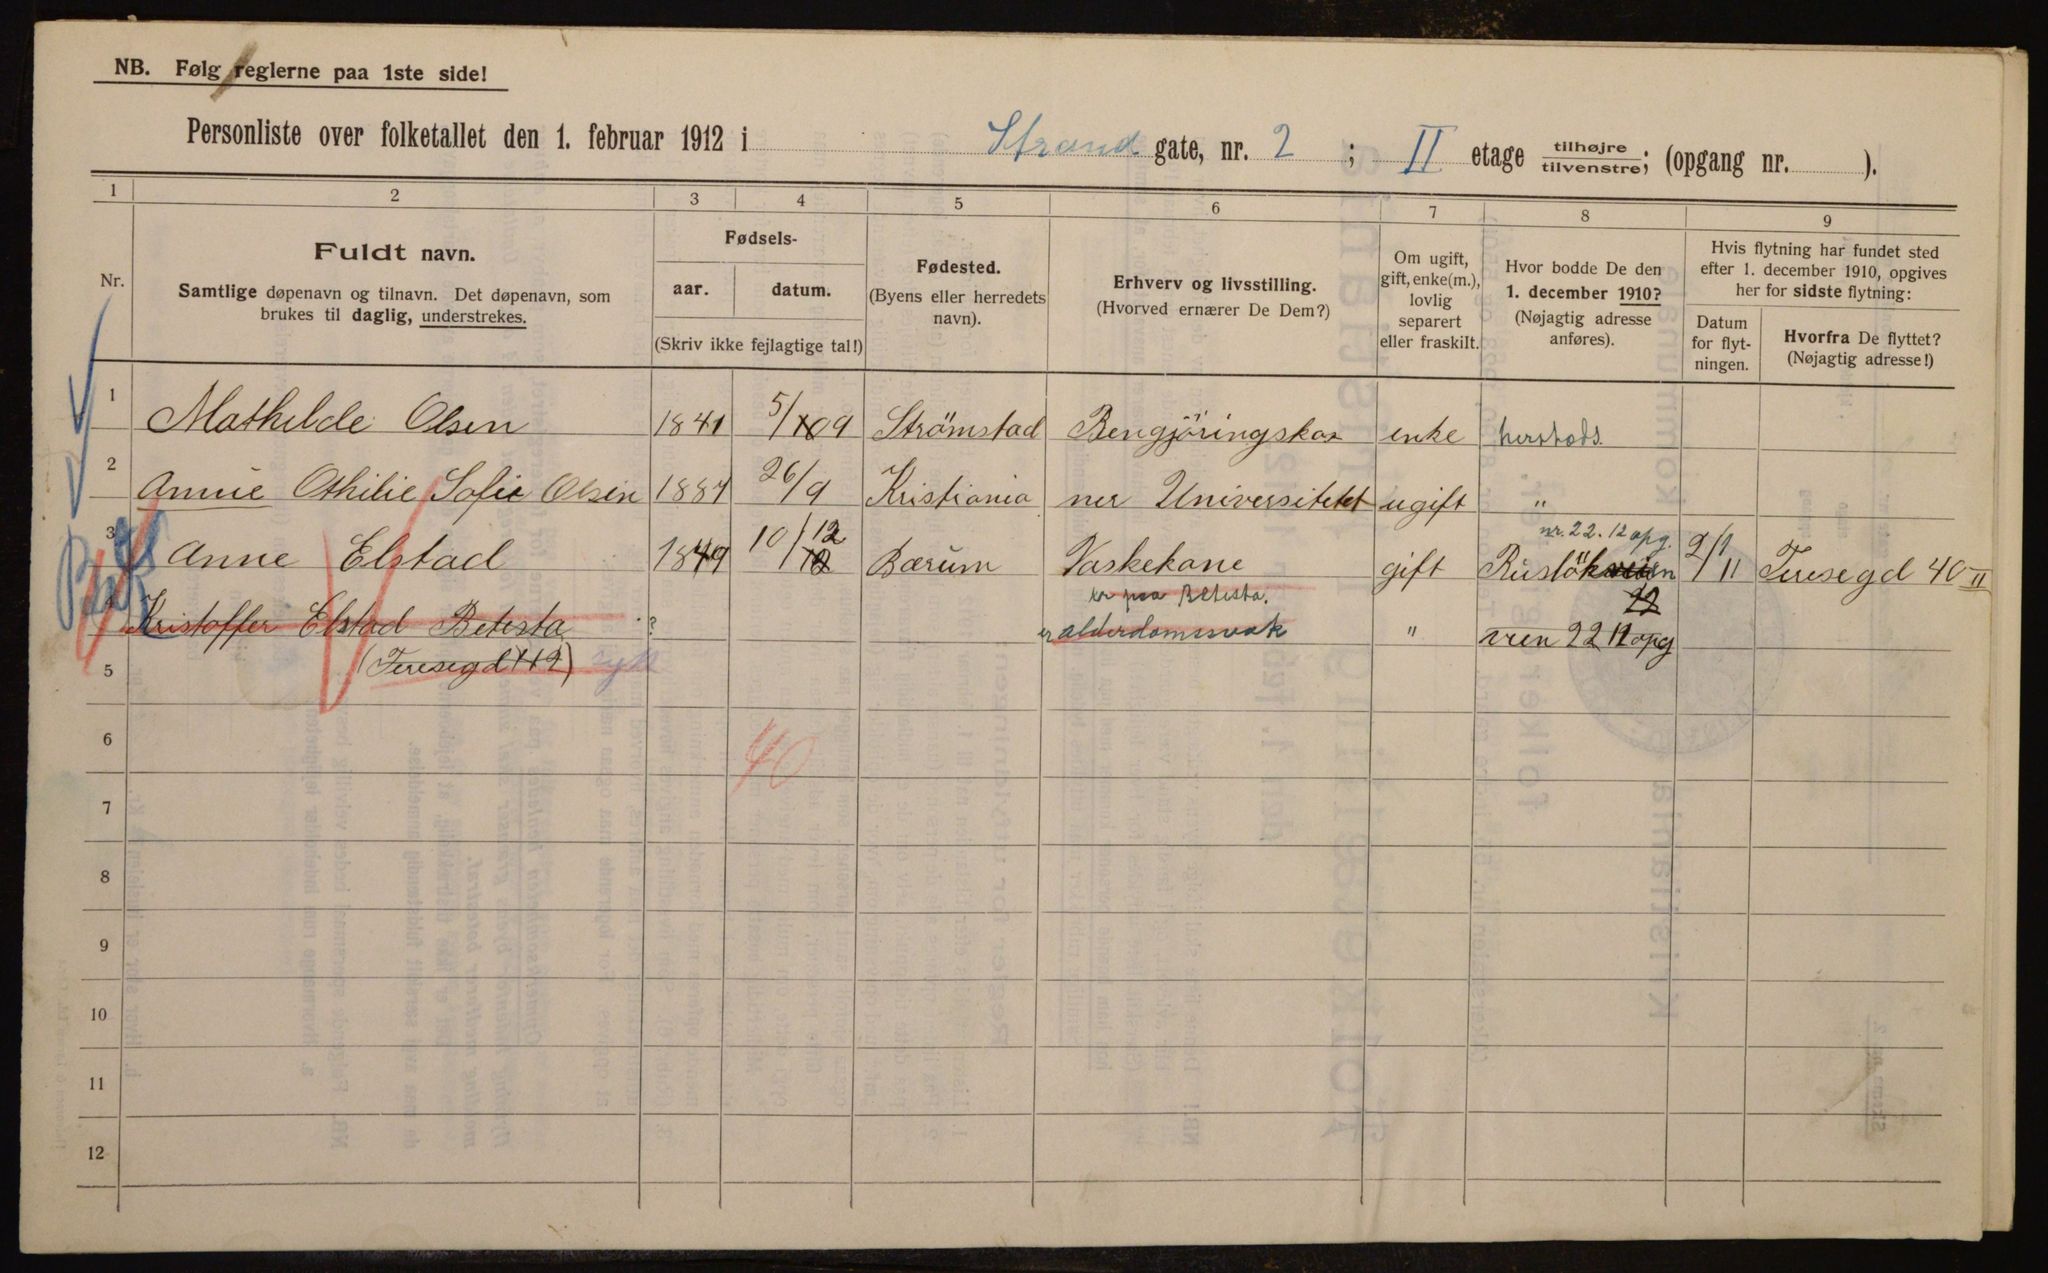 NB. Følg reglerne paa 1ste side!
Personliste over folketallet den 1. februar 1912 i Strand gate, nr. 2; II etage tilhøjre/tilvenstre; (opgang nr. ).
1 2 3 4 5 6 7 8 9
Nr.
Fuldt navn.
Samtlige døpenavn og tilnavn. Det døpenavn, som
brukes til daglig, understrekes.
Fødsels-
aar. datum.
(Skriv ikke fejlagtige tal!)
Fødested.
(Byens eller herredets
navn).
Erhverv og livsstilling.
(Hvorved ernærer De Dem?)
Om ugift,
gift, enke(m.),
lovlig
separert
eller fraskilt.
Hvor bodde De den
1. december 1910?
(Nøjagtig adresse
anføres).
Hvis flytning har fundet sted
efter 1. december 1910, opgives
her for sidste flytning:
Datum
for flyt-
ningen.
Hvorfra De flyttet?
(Nøjagtig adresse!)
1 Mathilde Olsen 1841 5/9 Strömstad Bengjöringsko enke herstods.
2 Annie Othilie Sofie Olsen 1887 26/9 Kristiania ner Universitetet ugift "
nr. 22. 12 opg.
3 Anne Elstad 1849 10/12 Bærum Vaskekone gift Ruslökveien 2/1 11 Teresegd 40 II
er paa Betesta. 22
4 Kristoffer Elstad Betesta ? er alderdomssvak " vren 22 12 opg
(Teresegd 112) syk
5
40
6
7
8
9
10
11
12